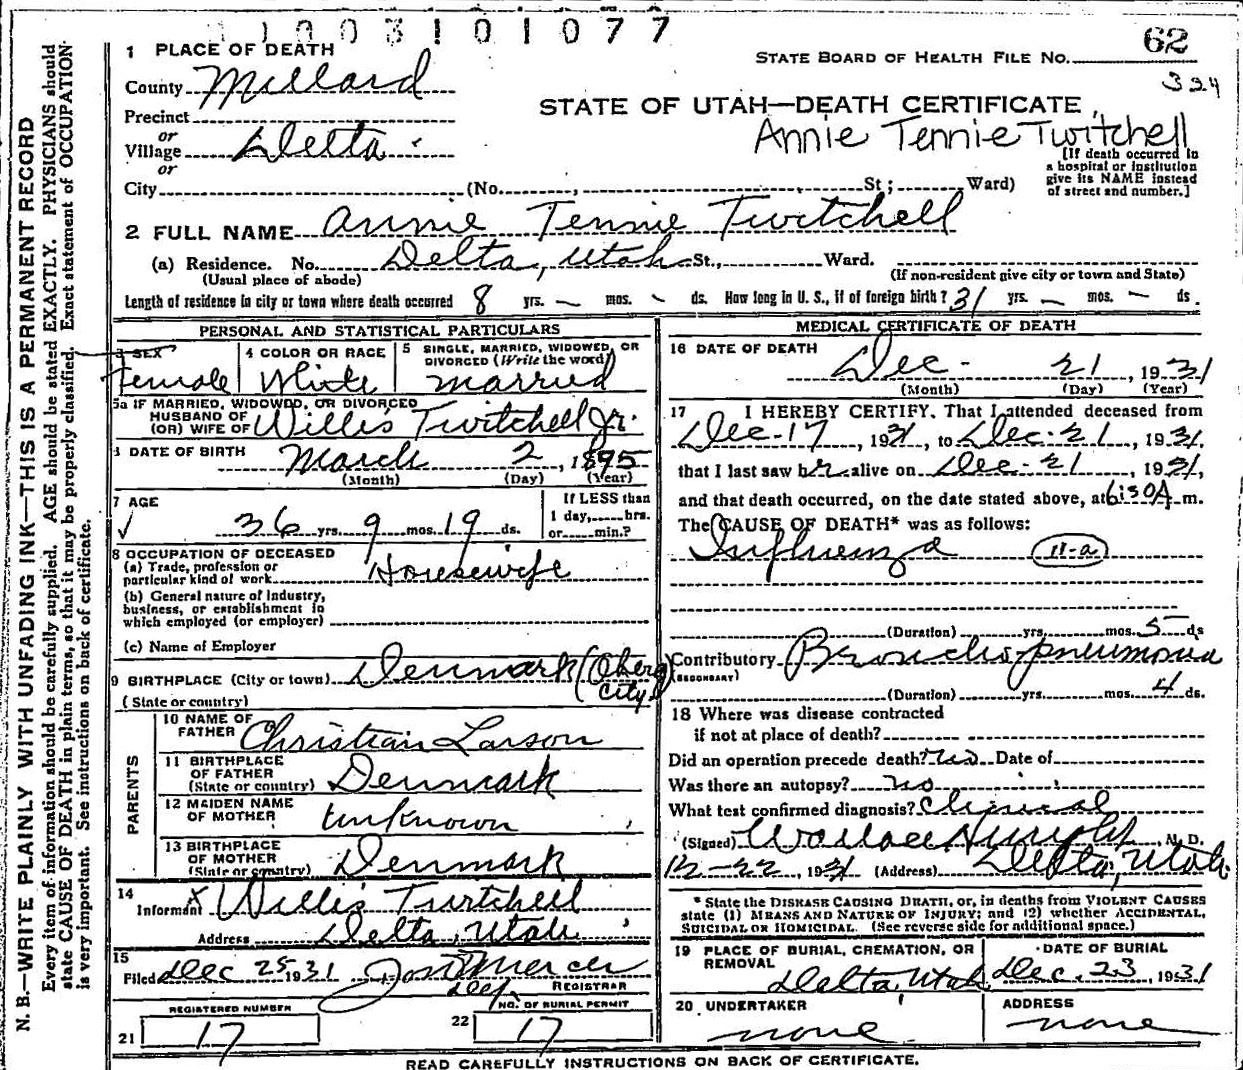 1003101077
62
STATE BOARD OF HEALTH FILE No.
324
1 PLACE OF DEATH
County Millard
STATE OF UTAH—DEATH CERTIFICATE
Precinct
or
Village Delta
Annie Tennie Twitchell
or
[If death occurred in a hospital or institution give its NAME instead of street and number.]
City (No. , St; Ward)
2 FULL NAME Annie Tennie Twitchell
(a) Residence. No. Delta, Utah St., Ward.
(Usual place of abode) (If non-resident give city or town and State)
Length of residence in city or town where death occurred 8 yrs. — mos. - ds. How long in U. S., if of foreign birth? 31 yrs. — mos. — ds.
PERSONAL AND STATISTICAL PARTICULARS
3 SEX 4 COLOR OR RACE 5 SINGLE, MARRIED, WIDOWED, OR DIVORCED (Write the word)
Female White married
5a IF MARRIED, WIDOWED, OR DIVORCED
HUSBAND OF
(OR) WIFE OF Willis Twitchell Jr.
DATE OF BIRTH March 2, 1895
(Month) (Day) (Year)
7 AGE If LESS than
36 yrs. 9 mos. 19 ds. 1 day, hrs.
or min.?
8 OCCUPATION OF DECEASED
(a) Trade, profession or
particular kind of work Housewife
(b) General nature of industry,
business, or establishment in
which employed (or employer)
(c) Name of Employer
9 BIRTHPLACE (City or town) Denmark (Oberg City)
(State or country)
PARENTS
10 NAME OF
FATHER Christian Larson
11 BIRTHPLACE
OF FATHER
(State or country) Denmark
12 MAIDEN NAME
OF MOTHER unknown
13 BIRTHPLACE
OF MOTHER
(State or country) Denmark
14
Informant X Willis Twitchell
Address Delta, Utah
15
Filed Dec 25 1931 Jos Mercer
Dep REGISTRAR
REGISTERED NUMBER NO. OF BURIAL PERMIT
21 17 22 17
MEDICAL CERTIFICATE OF DEATH
16 DATE OF DEATH
Dec - 21, 1931
(Month) (Day) (Year)
17 I HEREBY CERTIFY, That I attended deceased from
Dec-17, 1931, to Dec-21, 1931,
that I last saw her alive on Dec-21, 1931,
and that death occurred, on the date stated above, at 6:30 A. m.
The CAUSE OF DEATH* was as follows:
Influenza 11-a
(Duration) yrs. mos. 5 ds
Contributory Broncho-pneumonia
(SECONDARY)
(Duration) yrs. mos. 4 ds.
18 Where was disease contracted
if not at place of death?
Did an operation precede death? no Date of
Was there an autopsy? no
What test confirmed diagnosis? Clinical
(Signed) M. D.
12-22, 1931 (Address) Delta, Utah.
* State the DISEASE CAUSING DEATH, or, in deaths from VIOLENT CAUSES
state (1) MEANS AND NATURE OF INJURY; and (2) whether ACCIDENTAL,
SUICIDAL OR HOMICIDAL. (See reverse side for additional space.)
19 PLACE OF BURIAL, CREMATION, OR REMOVAL DATE OF BURIAL
Delta, Utah Dec. 23, 1931
20 UNDERTAKER ADDRESS
none none
READ CAREFULLY INSTRUCTIONS ON BACK OF CERTIFICATE.
N. B.—WRITE PLAINLY WITH UNFADING INK—THIS IS A PERMANENT RECORD
Every item of information should be carefully supplied. AGE should be stated EXACTLY. PHYSICIANS should
state CAUSE OF DEATH in plain terms, so that it may be properly classified. Exact statement of OCCUPATION
is very important. See instructions on back of certificate.